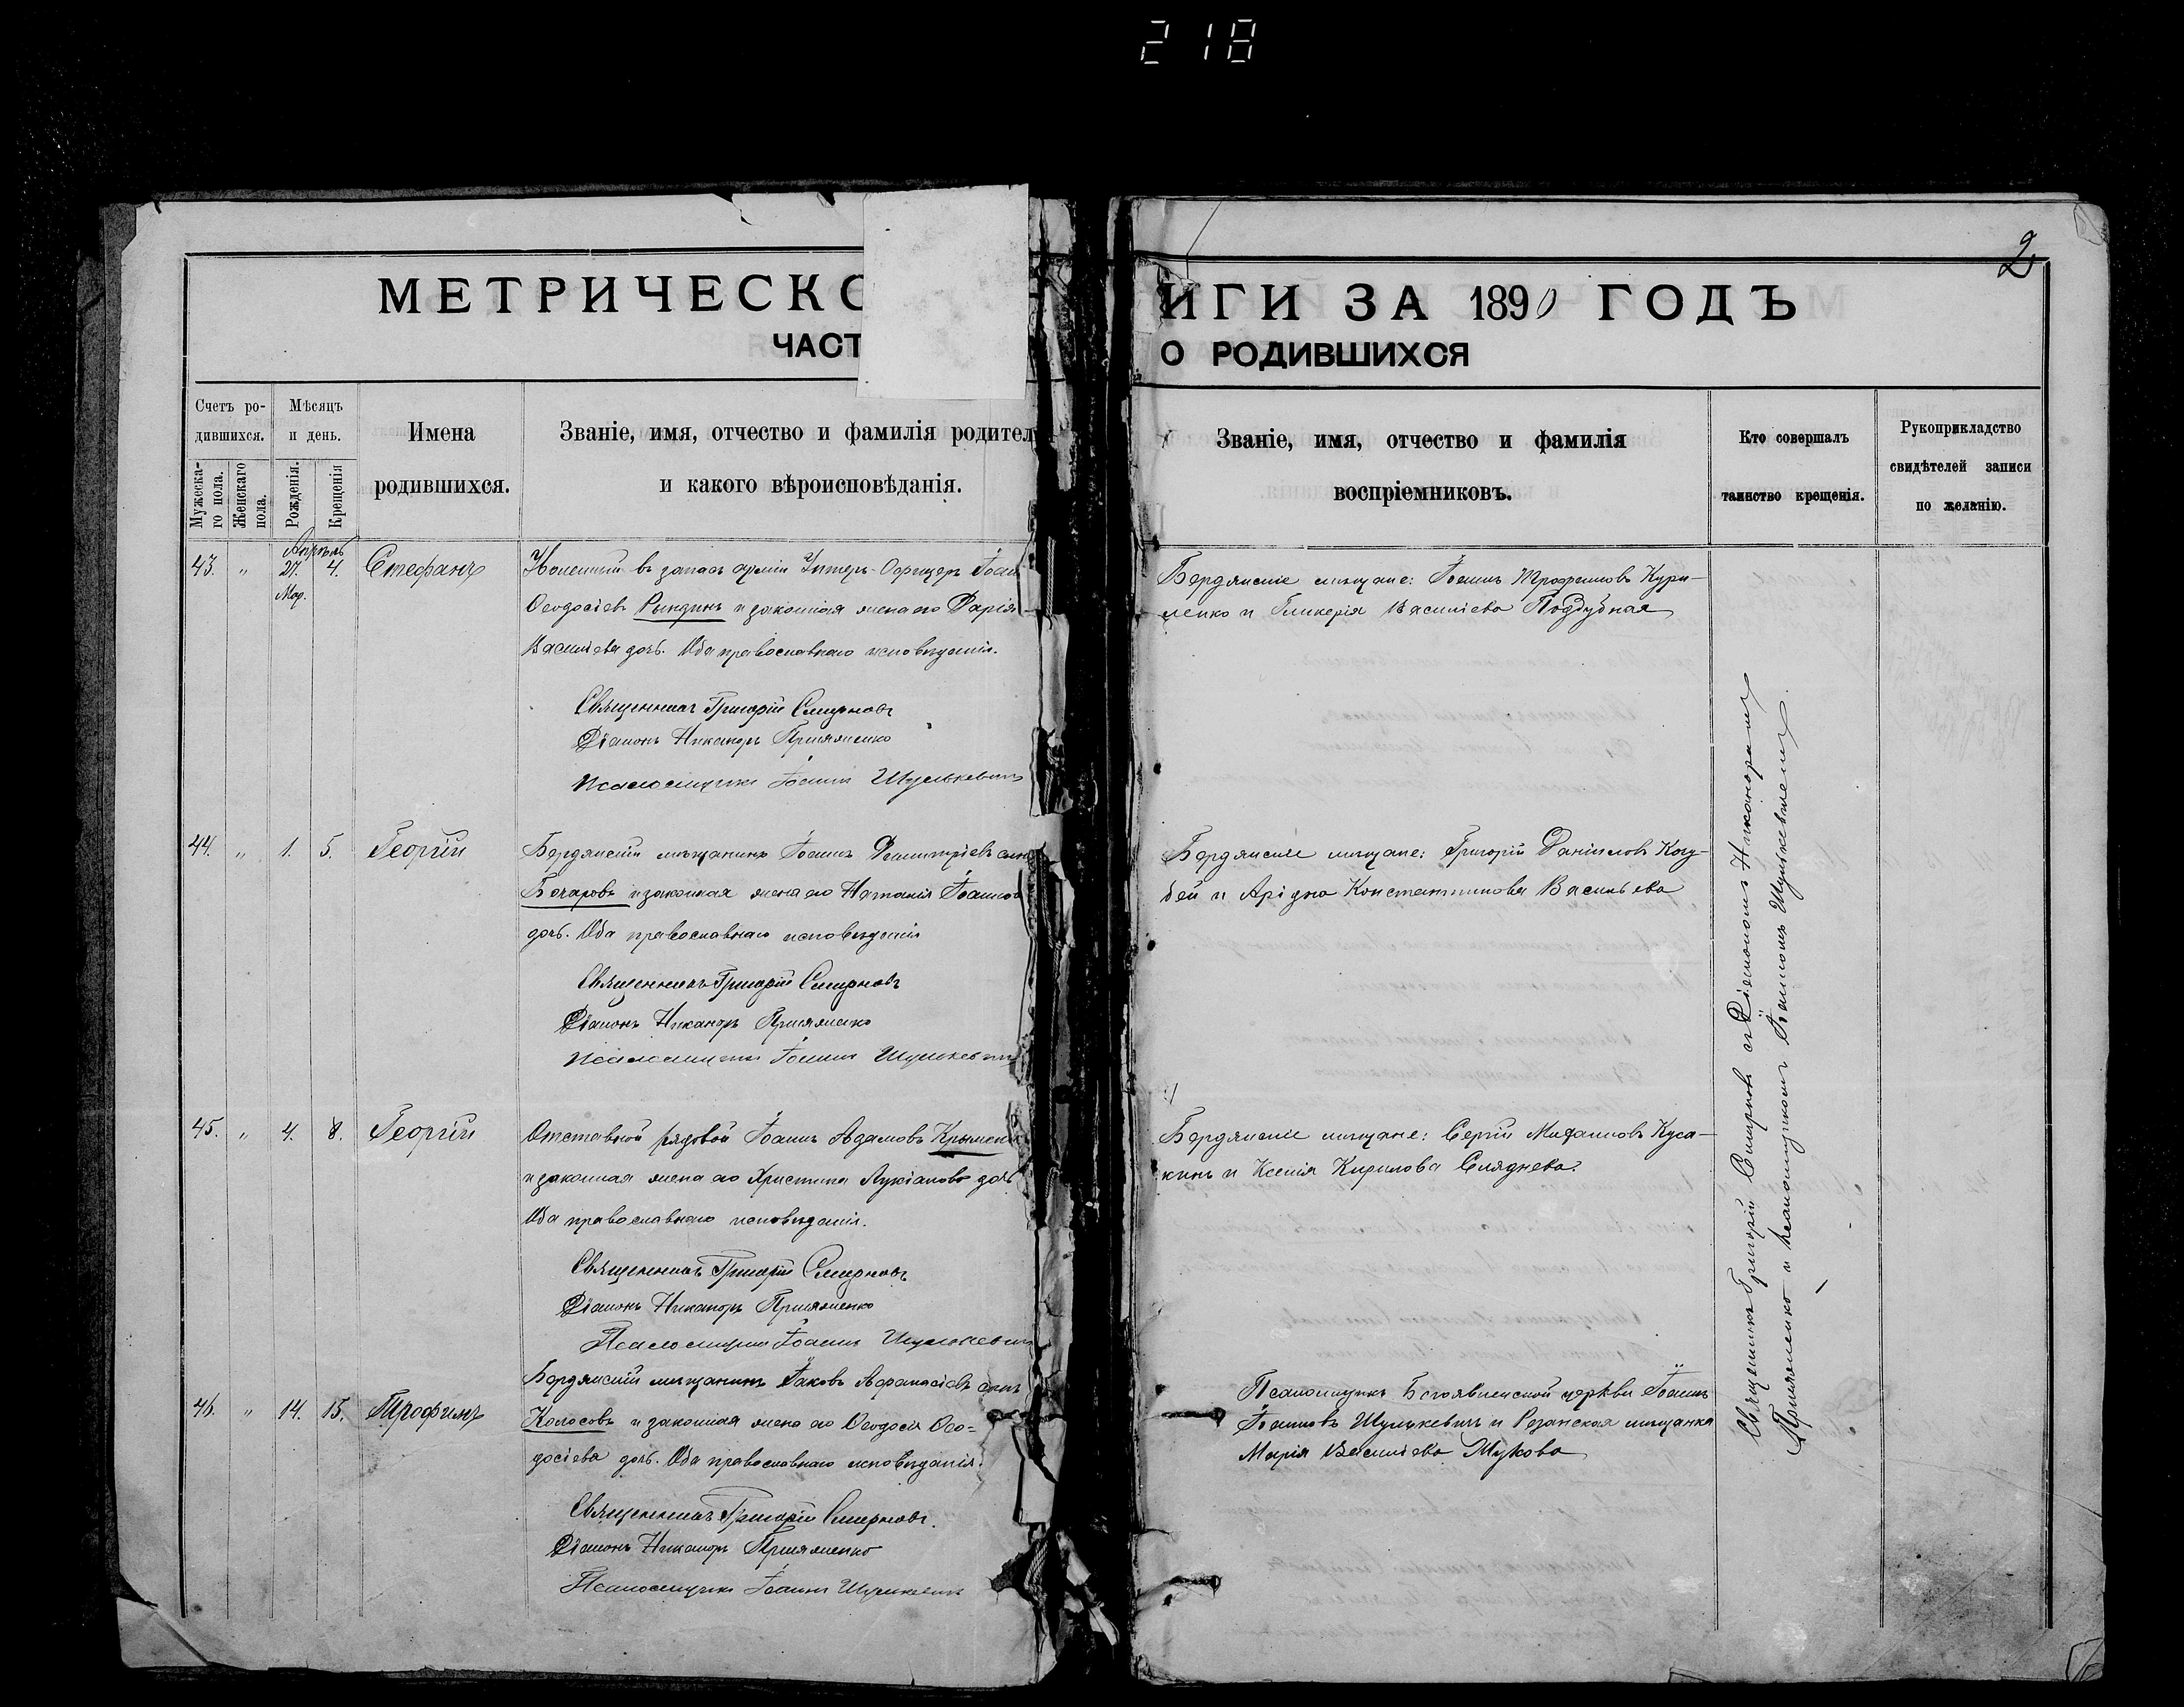 218
2
МЕТРИЧЕСКО
ЧАСТ
Счетъ ро-
дившихся.
Мужеска-
го пола.
Женскаго
пола.
Мѣсяцъ
и день.
Рожденія.
Крещенія
Имена
родившихся.
Званіе, имя, отчество и фамилія родител
и какого вѣроисповѣданія.
Апрѣль
43. " 27. 4. Стефанъ
Мар.
Уволенный въ запасъ арміи Унтеръ-Офицеръ Іоан
Ѳеодосіевъ Рындинъ и законная жена его Дарія
Василіева дочь. Оба православнаго исповѣданія.
Священникъ Григорій Смирновъ
Діаконъ Никаноръ
Псаломщикъ Іоаннъ Шулькевичъ
44. " 1. 5. Георгій
Бердянскій мѣщанинъ Іоаннъ Димитріевъ сынъ
Бочаровъ и законная жена его Наталія Іоаннов
дочь. Оба православнаго исповѣданія
Священникъ Григорій Смирновъ
Діаконъ Никаноръ
Псаломщикъ Іоаннъ Шулькевичъ
45. " 4. 8. Георгій
Отставной рядовой Іоаннъ Адамовъ
и законная жена его Христина Лукіанова дочь
Оба православнаго исповѣданія.
Священникъ Григорій Смирновъ
Діаконъ Никаноръ
Псаломщикъ Іоаннъ Шулькевичъ
46. " 14. 15. Трофимъ
Бердянскій мѣщанинъ Іаковъ Аѳанасіевъ сынъ
Колосовъ и законная жена его Ѳеодосія Ѳео=
досіева дочь. Оба православнаго исповѣданія.
Священникъ Григорій Смирновъ.
Діаконъ Никаноръ
Псаломщикъ Іоаннъ Шулькевичъ
ИГИ ЗА 1890 ГОДЪ
О РОДИВШИХСЯ
Званіе, имя, отчество и фамилія
воспріемниковъ.
Кто совершалъ
таинство крещенія.
Рукоприкладство
свидѣтелей записи
по желанію.
Бердянскіе мѣщане: Іоаннъ Трофимовъ Кури-
ленко и Гликерія Василіева Поддубная
Бердянскіе мѣщане: Григорій Даніиловъ Кочу-
бей и Аріадна Константинова Васильева
Бердянскіе мѣщане: Сергій Куса-
кинъ и Ксенія Кирилова Сляднева.
Псаломщикъ Богоявленской церкви Іоаннъ
Іоанновъ Шулькевичъ и Рязанская мѣщанка
Марія Василіева Жукова
Священникъ Григорій Смирновъ съ Діакономъ Никаноромъ
и псаломщикомъ Іоанномъ Шулькевичемъ.